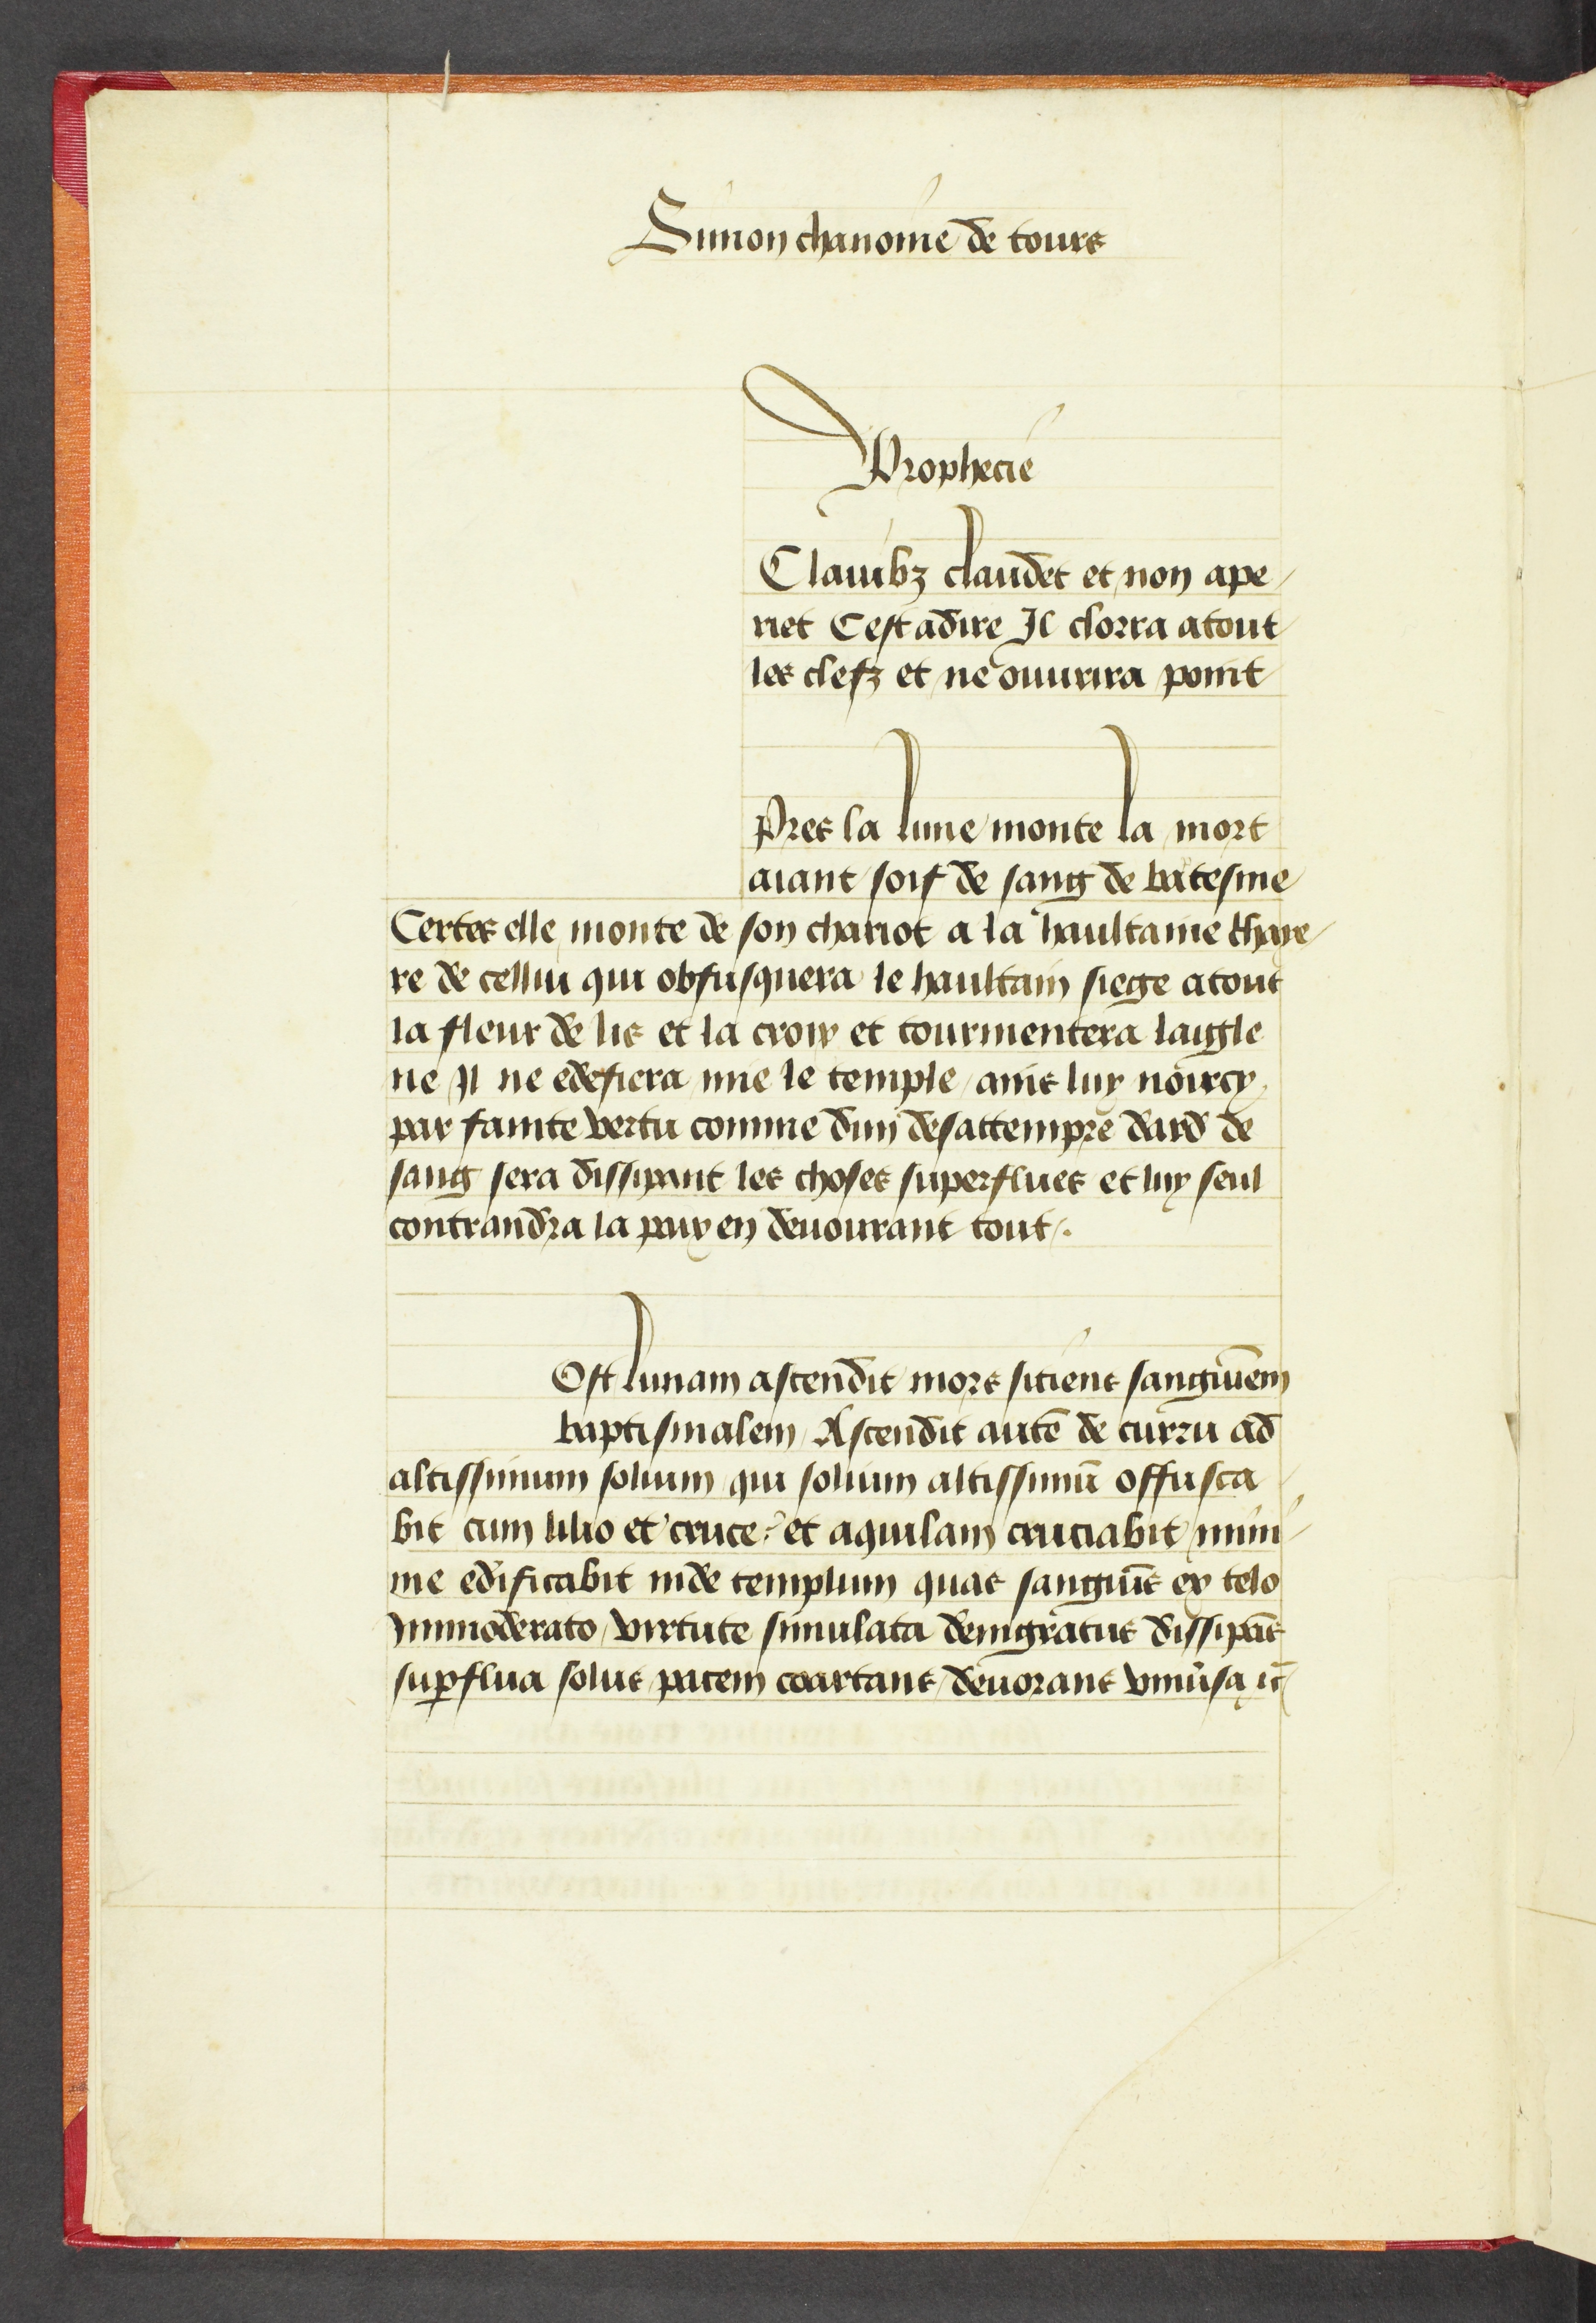 Simon chanoine de tours
Prophecie
Clauibz claudet et non ape
riet Cest adire Il clorra atout
les clefz et ne ouurira point
Pres la lune monte la mort
aiant soif de sang de batesme
Certes elle monte de son chariot a la haultaine chaye
re de cellui qui obfusquera le haultain siege atout
la fleur de lis et la croix et tourmentera laigle
ne Il ne edefiera mie le temple ains luy noircy
par fainte vertu comme dun desattempre dard de
sang sera dissipant les choses superflues et luy seul
contrandra la paix en deuourant tout
Ost lunam ascendit mors sitiens sanguinem
baptismalem Ascendit autē de curru ad
altissimum solium qui solium altissimū offusca
bit cum lilio et cruce et aquilam cruciabit mini
me edificabit inde templum quas sanguīs ex telo
Immoderato virtute simulata denigratus dissipās
supflua solus pacem coartans deuorans vniūsa